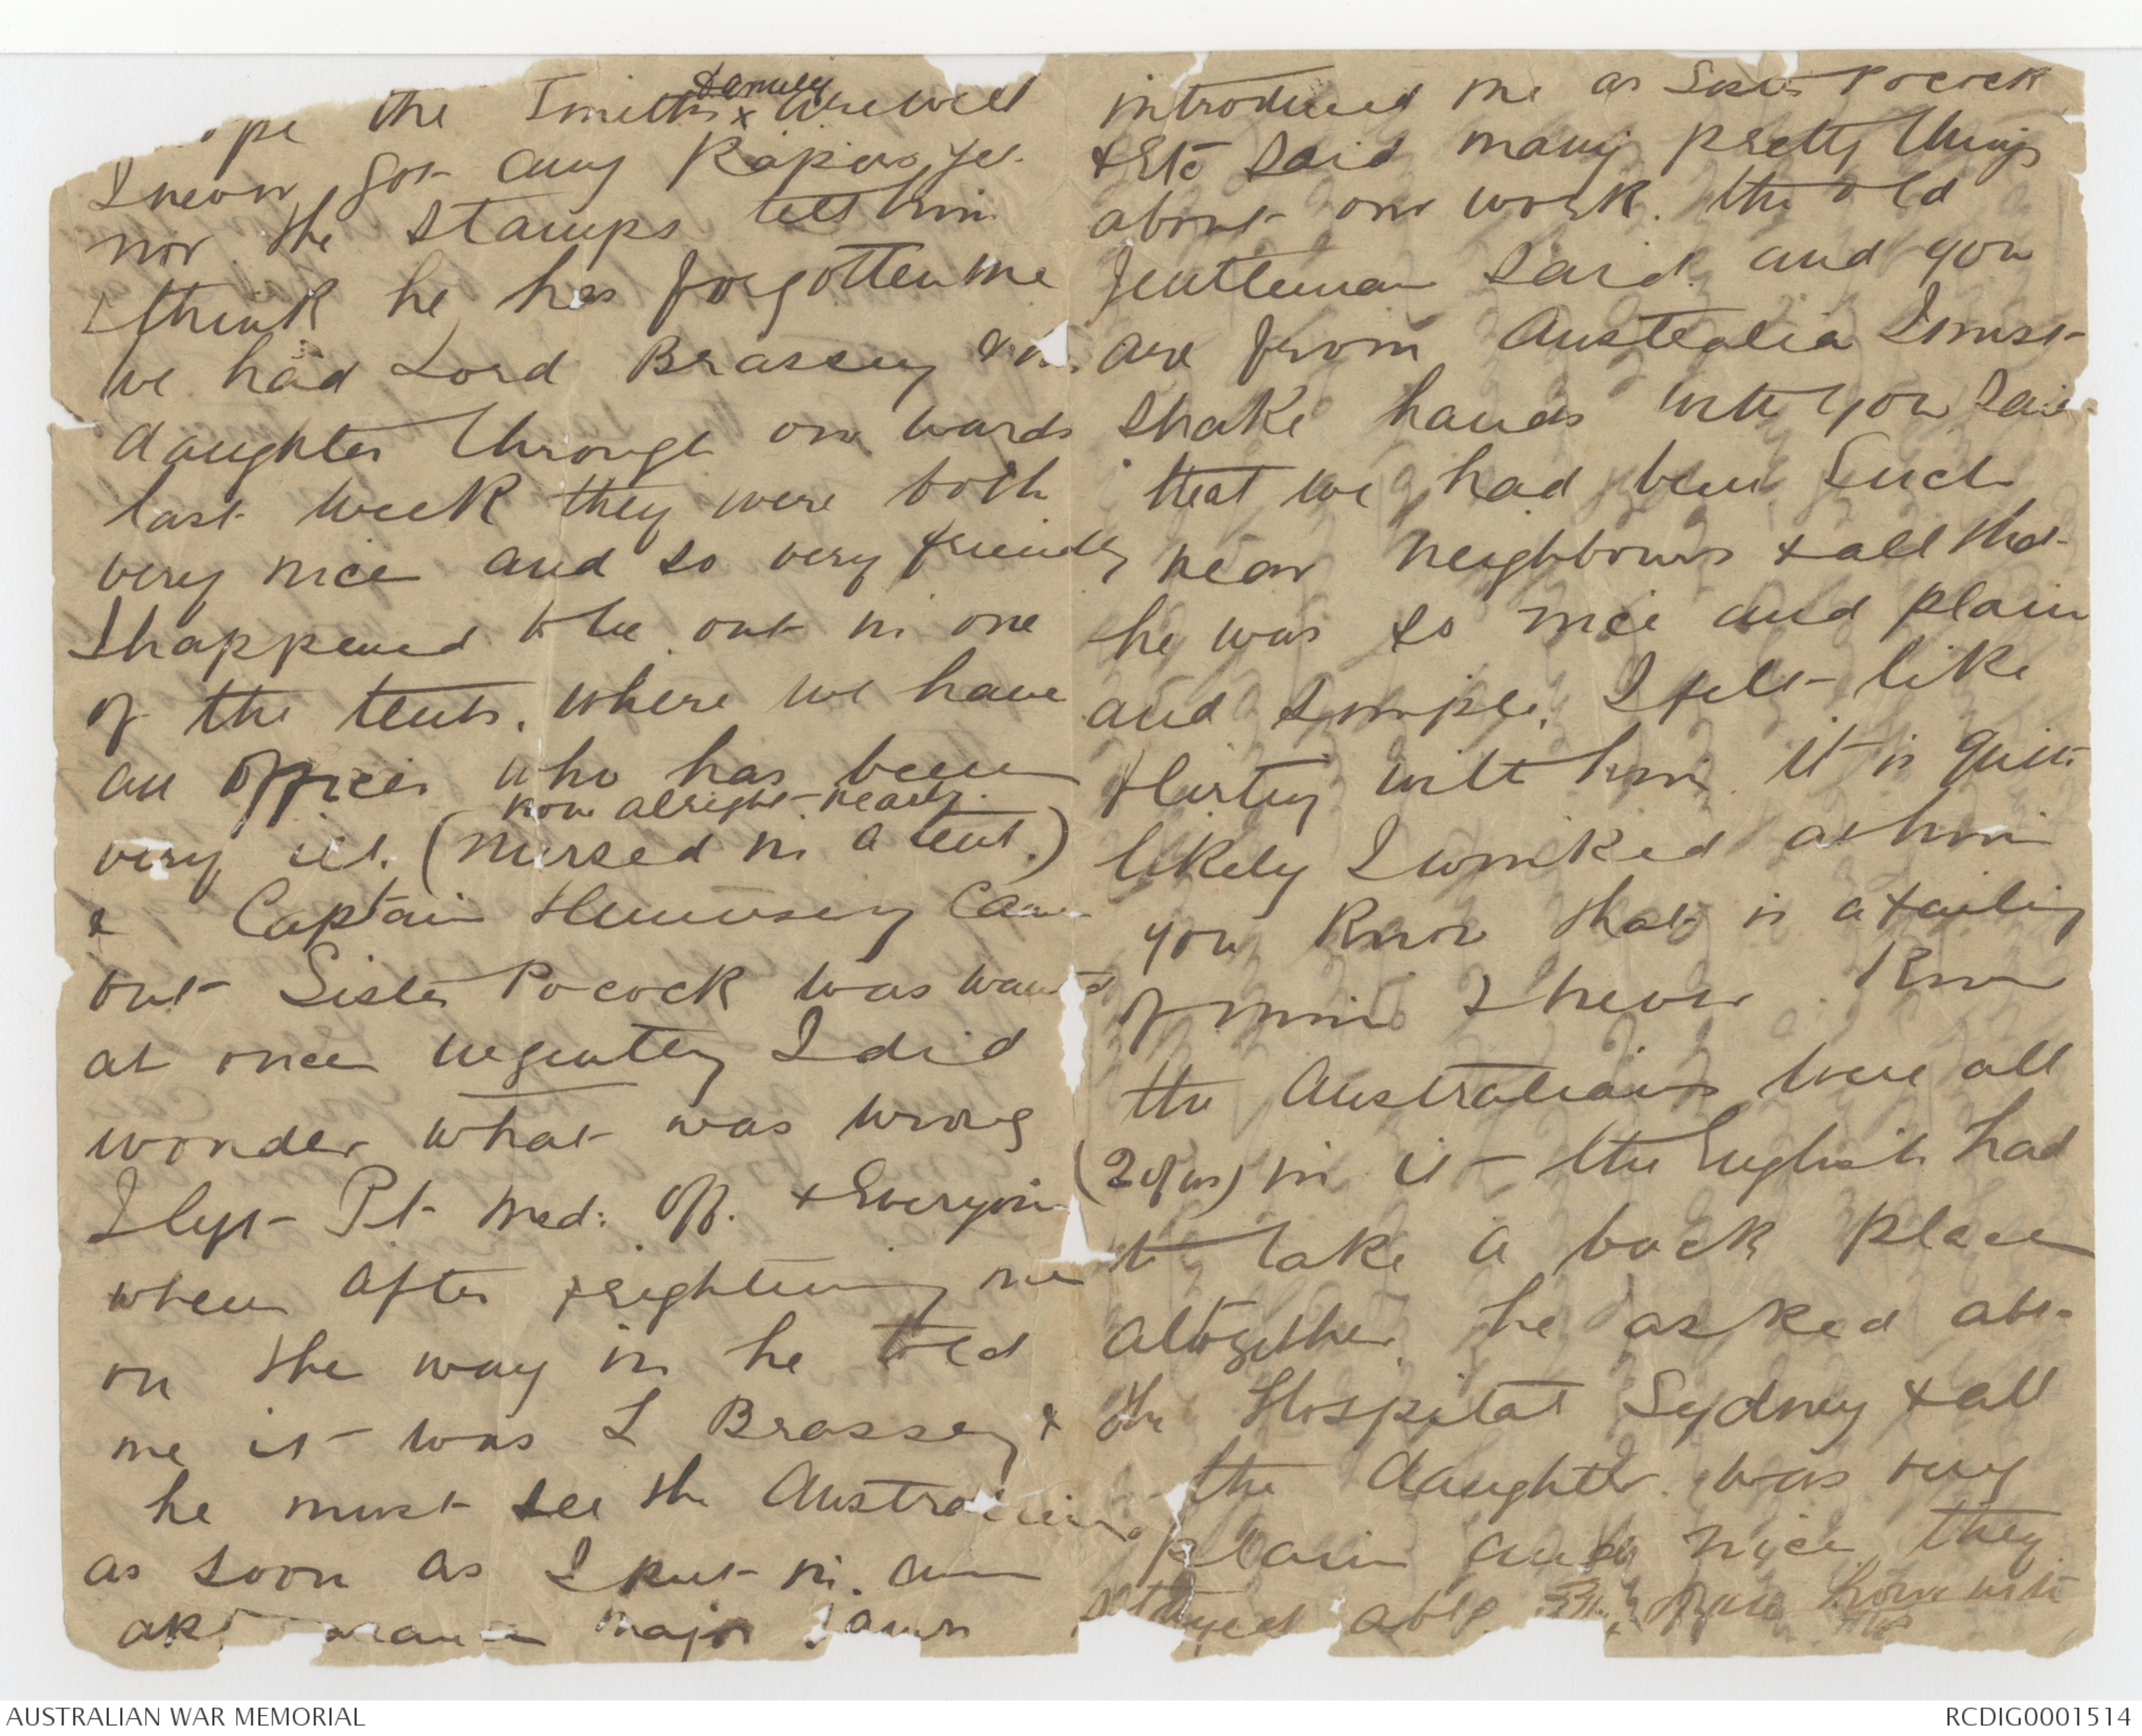 the Smiths x family are well
I never got any Papers yet
nor the stamps tell him
I think he has forgotten me
We had Lord Brassey &
daughter through our wards
last week they were both
very nice and so very friendly
I happened to be out in one
of the tents, where we have
an officer who has been
now alright nearly.
very ill. (nursed in a tent.)
& Captain Hennessey came
out Sister Pocock was wanted
at once urgently I did
wonder what was wrong
I left Pt Med: Off. & Everyone
when after frightening me
on the way in he told
me it was L Brassey &
he must see the Australians
as soon as I put in an
Major
introduced me as Sister Pocock
& Etc said many pretty things
about our work. The old
gentleman said. and you
are from Australia I must
shake hands with you said
that we had been such
near neighbours & all that
he was so nice and plain
and simple. I felt like
flirting with him. it is quite
likely I winked at him
you know that is a failing
of mine I never know
the Australians were all
(2 of us) in it - the English had
to take a back place
altogether. he asked abt
the Hospital Sydney & all
the daughter was very
plain and nice they
abt home with